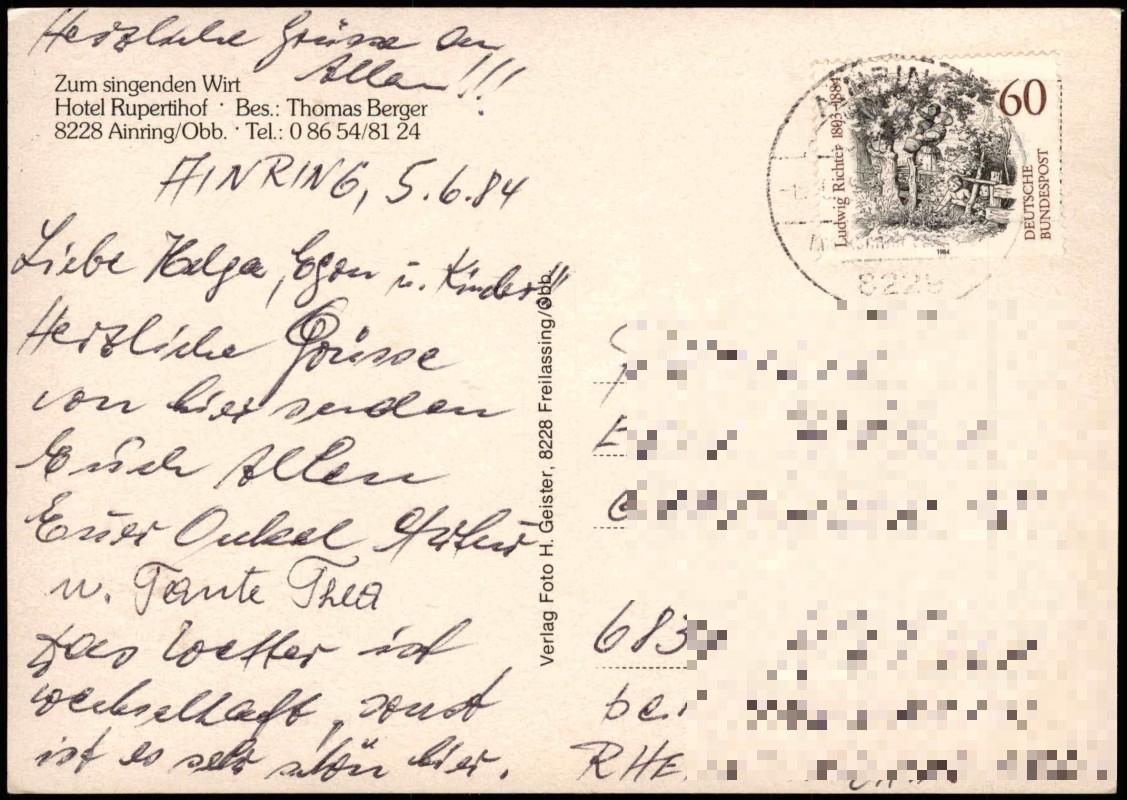 Herzliche Grüsse an
Allen!!!
Zum singenden Wirt
Hotel Rupertihof · Bes.: Thomas Berger
8228 Ainring/Obb. · Tel.: 0 86 54/81 24
AINRING, 5.6.84
Liebe Helga, Egon u. Kinder!!
Herzliche Grüsse
von hier senden
Euch Allen
Euer Onkel Artur
u. Tante Thea
Das Wetter ist
wechselhaft, sonst
ist es sehr schön hier.
Verlag Foto H. Geister, 8228 Freilassing/Obb.
AINRING
8229
60
Ludwig Richter 1803-1884
DEUTSCHE
BUNDESPOST
1984
683
bei
RHE